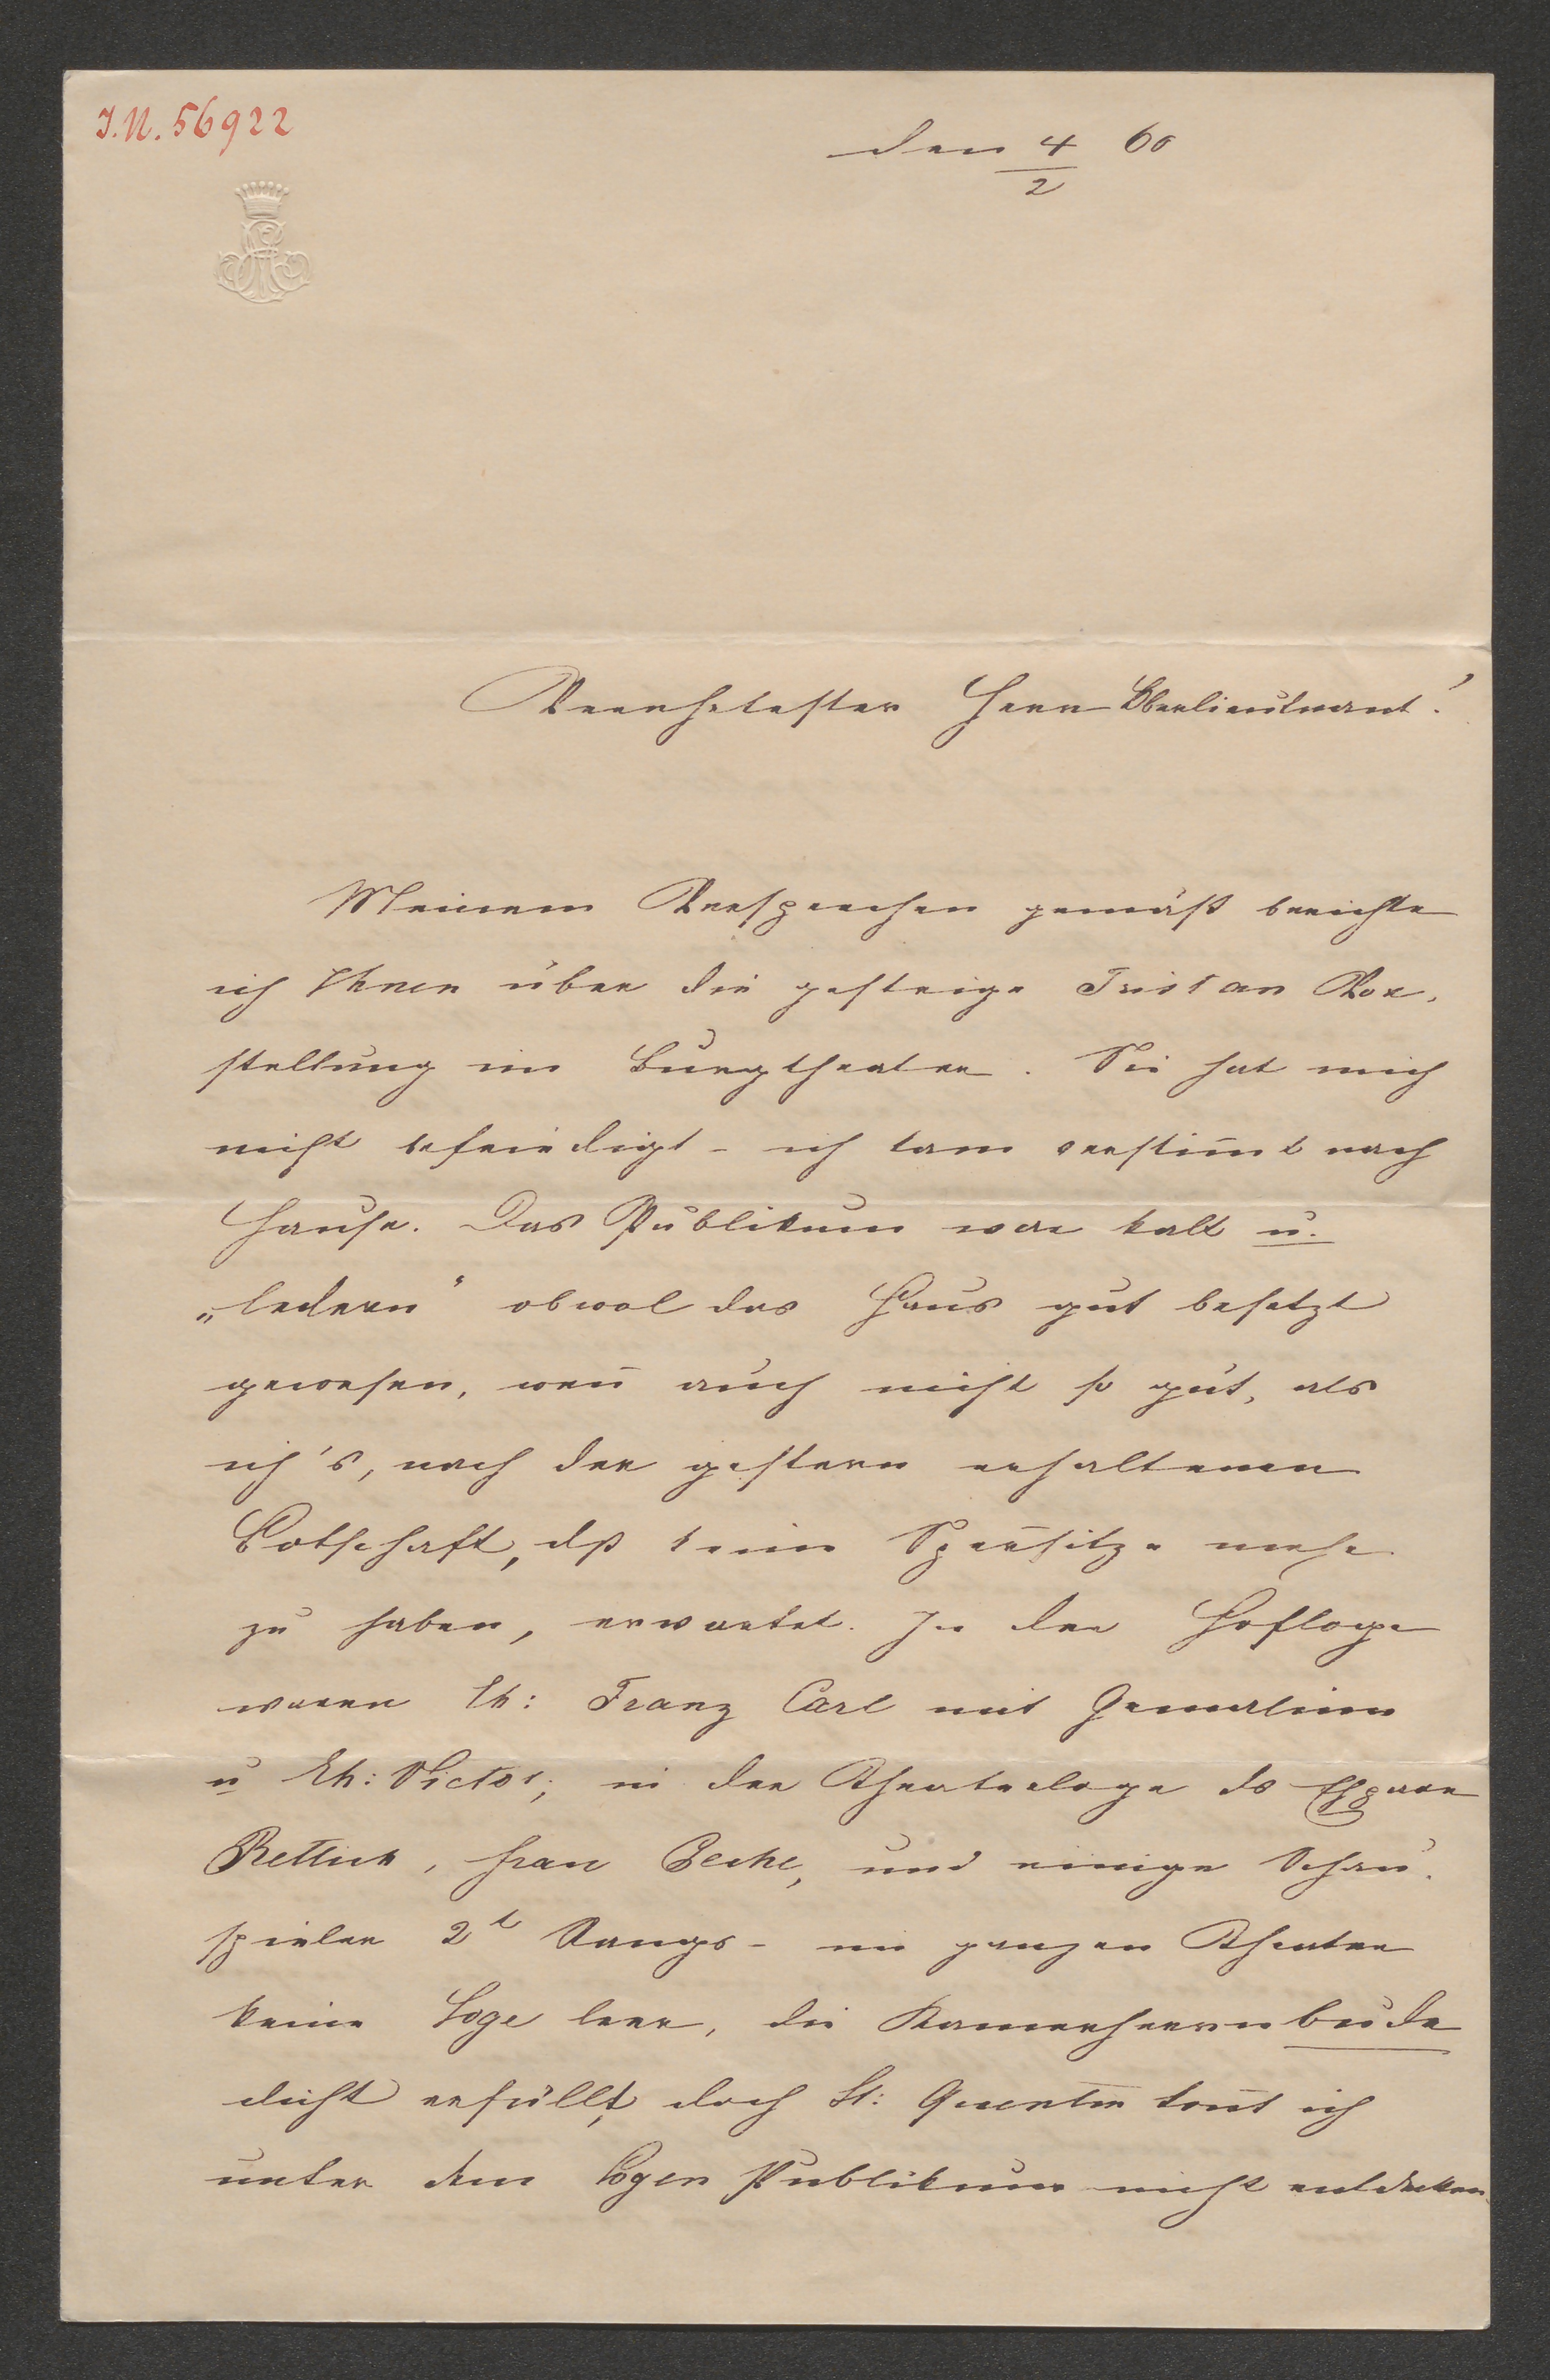 I.N. 56922
den 4/2 60
Verehrtester Herr Oberlieutnant!
Meinem Versprechen gemäß berichte
ich Ihnen über die gestrige Tristan Vor-
stellung im Burgtheater. Sie hat mich
nicht befriedigt – ich kam verstim̅t nach
Hause. Das Publikum war kalt u.
„ledern" obwol das Haus gut besetzt
gewesen, wen̅ auch nicht so gut, als
ich's, nach der gestern erhaltenen
Botschaft, dß keine Sper̅sitze mehr
zu haben, erwartet. In der Hofloge
waren Eh: Franz Carl mit Gemalinn
u Eh: Victor; in der Theaterloge das Ehepaar
Rettich, Frau Beche, und einige Schau-
spieler 2t Rangs – im ganzen Theater
keine Loge leer, die Kam̅erherrnbude
dicht erfüllt, doch St: Quentin kon̅t ich
unter dem Logen Publikum nicht entdecken.